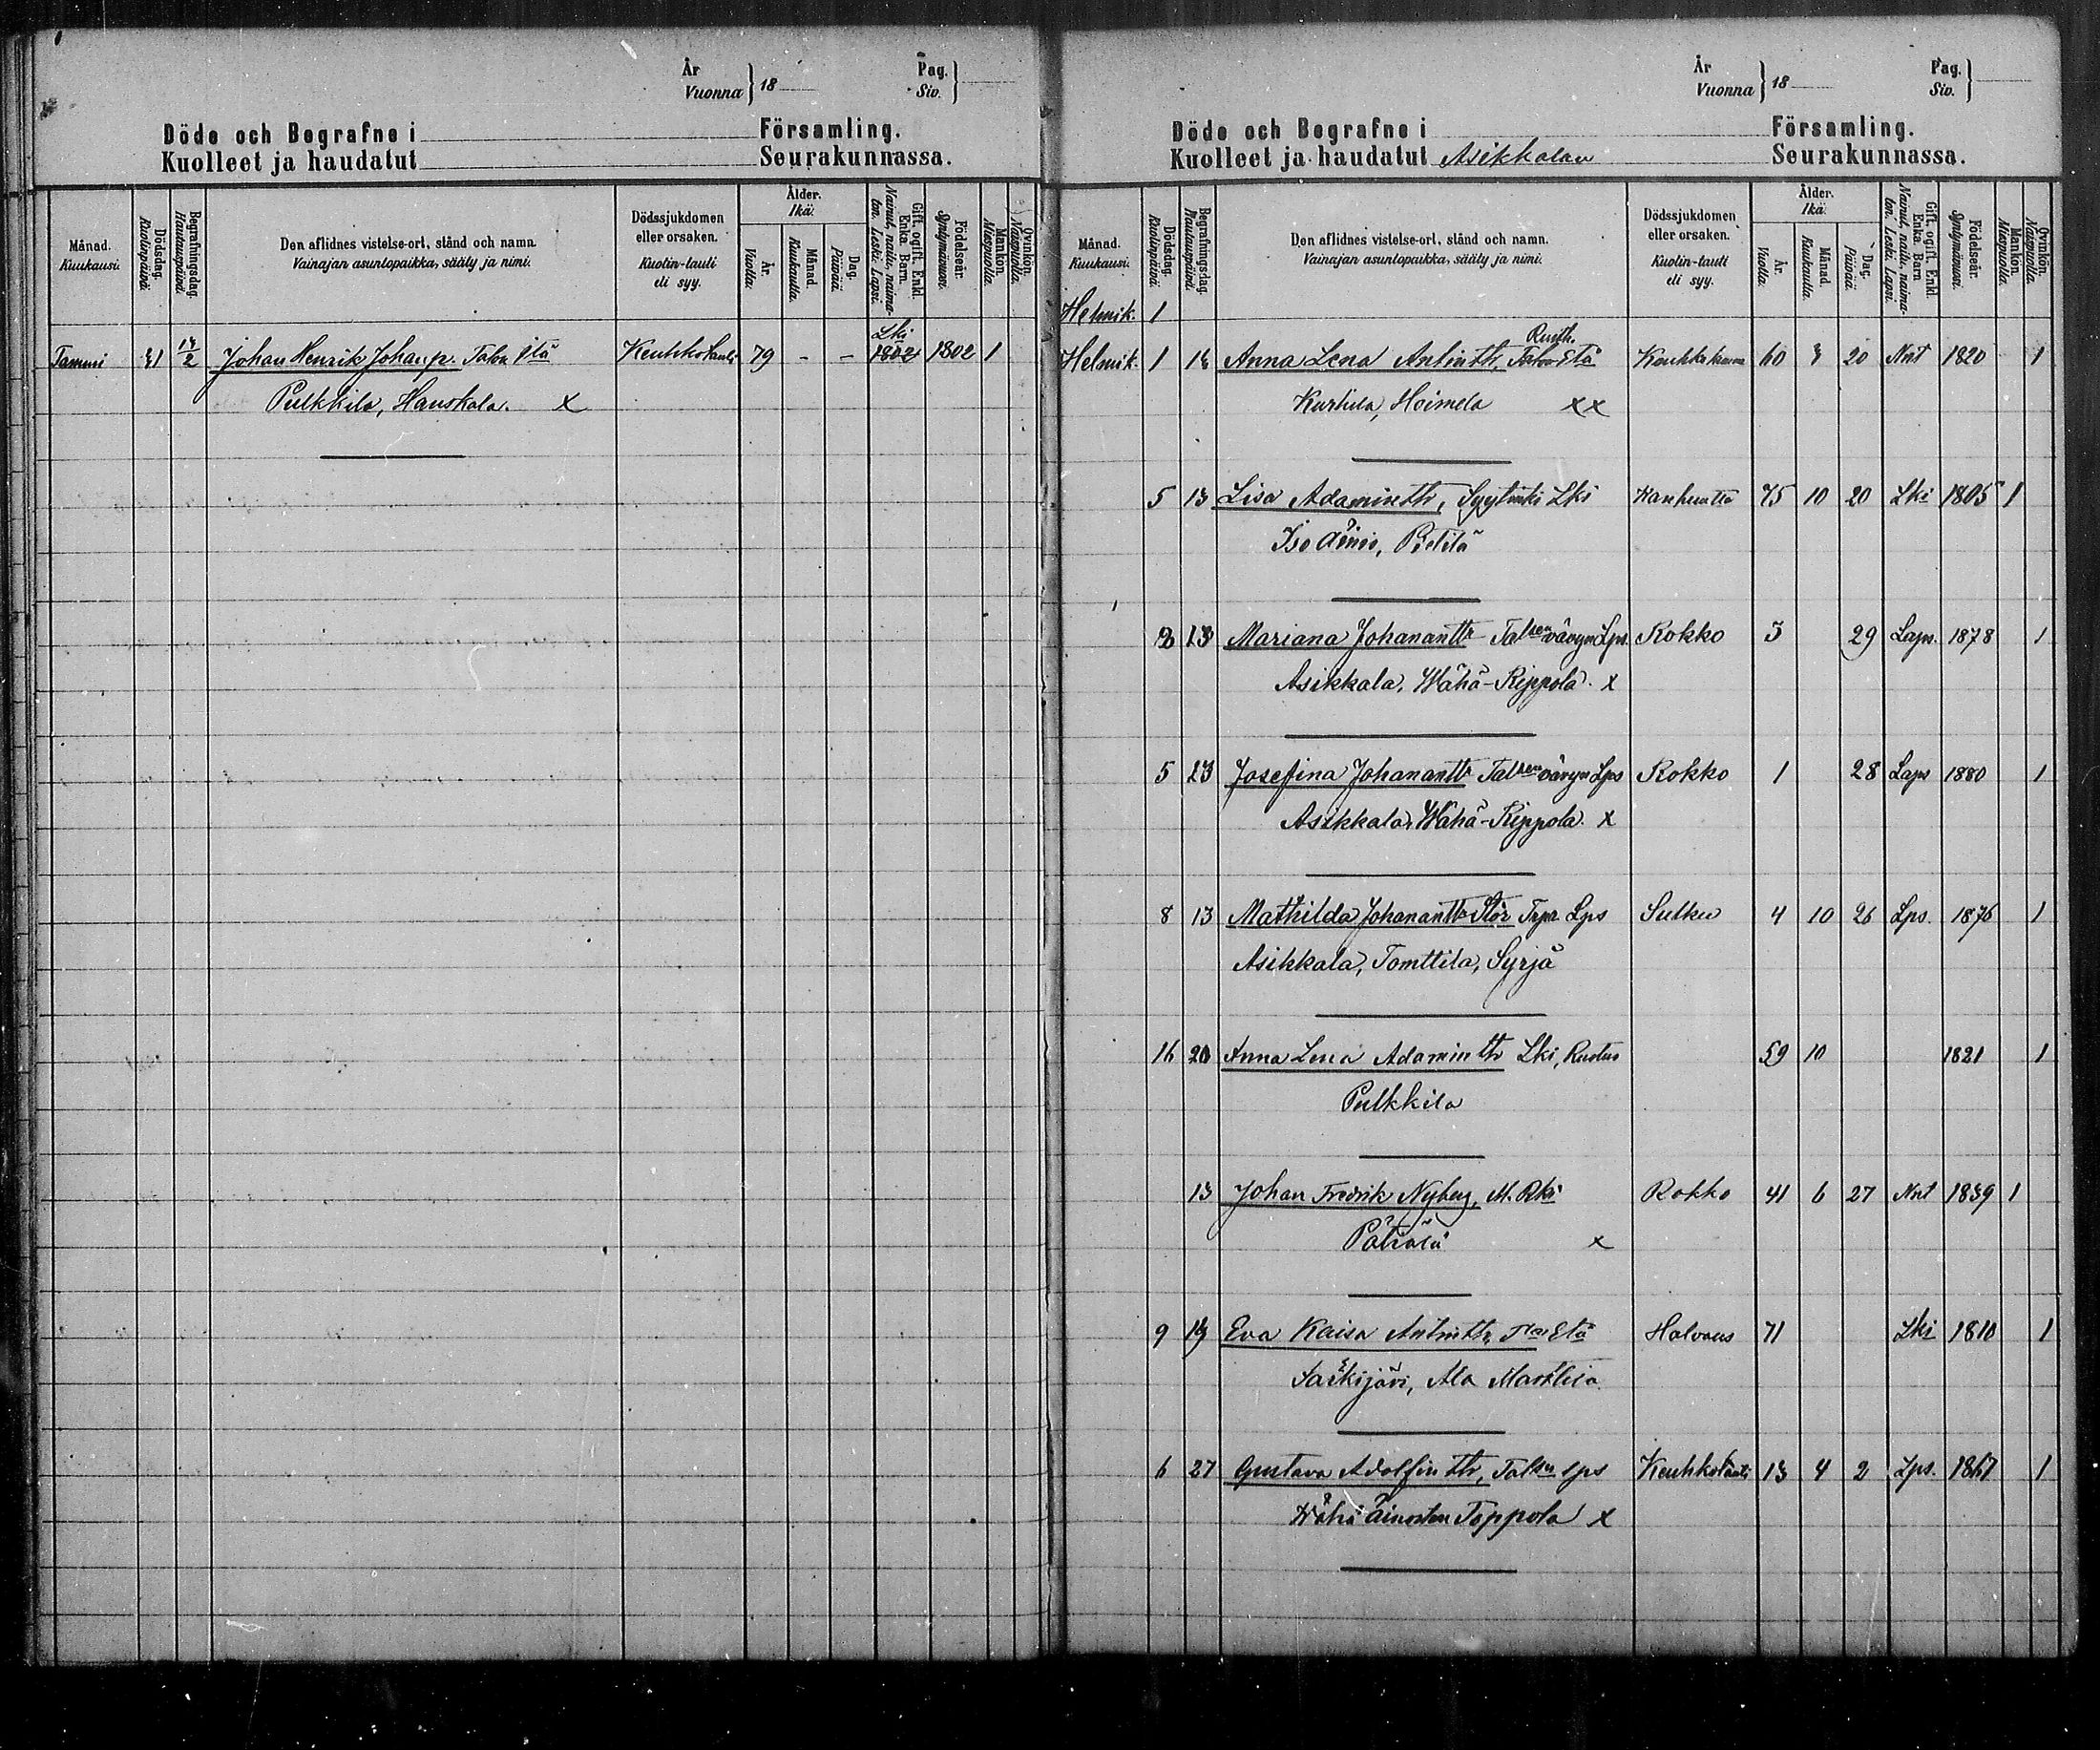 År
Vuonna } 18
Pag.
Siv. }
Döde och Begrafne i Församling.
Kuolleet ja haudatut Seurakunnassa.
Månad. Kuukausi.
Dödsdag. Kuolinpäivä.
Begrafningsdag. Hautauspäivä.
Den aflidnes vistelse-ort, stånd och namn. Vainajan asuntopaikka, sääty ja nimi.
Dödssjukdomen eller orsaken. Kuolin-tauti eli syy.
Ålder. Ikä.
År. Vuotta.
Månad. Kuukautta.
Dag. Päivää.
Gift, ogift. Enkl. Enka. Barn. Nainut, naitu, naimaton. Leski. Lapsi.
Födelseår. Syntymävuosi.
Mankön. Miespuolia.
Qvinkön. Naispuolia.
Lki
Tammi 31 13/2 Johan Henrik Johanp. Talon Itä Keuhkotauti 79 - - 1802 1802 1
Pulkkila, Hauskala. X
År
Vuonna } 18
Pag.
Siv. }
Döde och Begrafne i Församling.
Kuolleet ja haudatut Asikkalan Seurakunnassa.
Månad. Kuukausi.
Dödsdag. Kuolinpäivä.
Begrafningsdag. Hautauspäivä.
Den aflidnes vistelse-ort, stånd och namn. Vainajan asuntopaikka, sääty ja nimi.
Dödssjukdomen eller orsaken. Kuolin-tauti eli syy.
Ålder. Ikä.
År. Vuotta.
Månad. Kuukautta.
Dag. Päivää.
Gift, ogift. Enkl. Enka. Barn. Nainut, naitu, naimaton. Leski. Lapsi.
Födelseår. Syntymävuosi.
Mankön. Miespuolia.
Qvinkön. Naispuolia.
Helmik. 1
Helmik. 1 Anna Lena Antintr, Talon Etä 60 3 20 Nnt 1820 1
Kurhila, Hoimela XX
5 13 Lisa Adamintr, Syytinki Lki Vanhuutta 75 10 20 Lki 1805 1
Iso Äiniö, Pietilä
13 Mariana Johanantr Talsen vävyn Lps. Rokko 3 29 Laps. 1878 1
Asikkala, Wähä-Rippola. X
5 13 Josefina Johanantr Talsen vävyn Lps Rokko 1 28 Laps 1880 1
Asikkala, Wähä-Rippola. X
8 13 Mathilda Johanantr Stör Trpr Lps Sulku 4 10 26 Lps. 1876 1
Asikkala, Tomttila, Syrjä
16 20 Anna Lena Adamintr Lki, Ruotus 59 10 1821 1
Pulkkila
13 Johan Fredrik Nyberg, M. Rki Rokko 41 6 27 Nnt 1839 1
X
9 Eva Kaisa Antintr, Etä Halvaus 71 Lki 1810 1
Särkijävi, Ala Marttila
6 27 Gustava Adolfintr, Talsn lps Keuhkotauti 13 4 2 Lps. 1867 1
Wähä Äiniönkm Toppola X